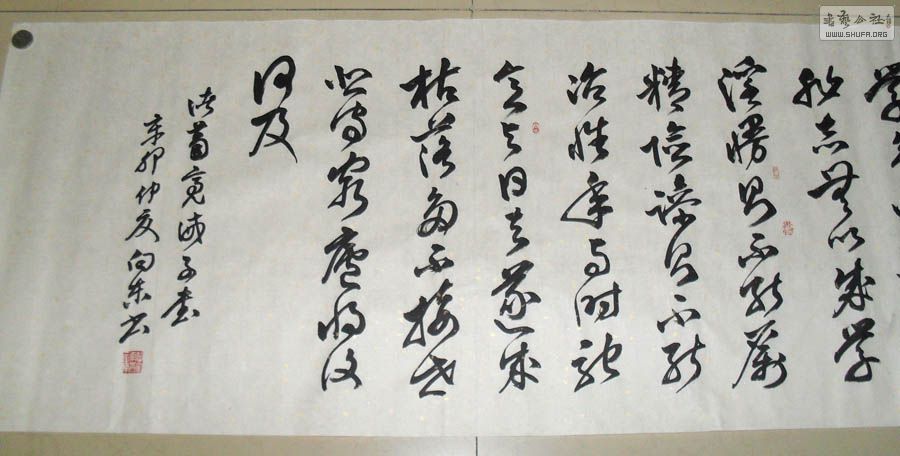 書藝公社
WWW.SHUFA.ORG
學
非志無以成學
淫慢则不能勵
精險躁则不能
治性年与时馳
意与日去遂成
枯落多不接世
悲守窮廬将復
何及
诸葛亮诫子書
辛卯仲夏向东书